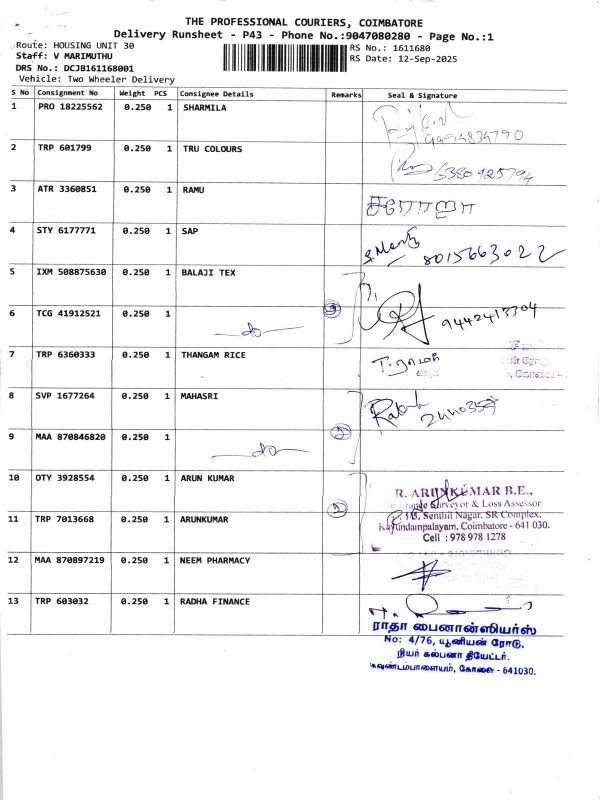 THE PROFESSIONAL COURIERS, COIMBATORE
Delivery Runsheet - P43 - Phone No.:9047080280 - Page No.:1
Route: HOUSING UNIT 30
RS No.: 1611680
Staff: V MARIMUTHU
RS Date: 12-Sep-2025
DRS No.: DCJB161168001
Vehicle: Two Wheeler Delivery
S No Consignment No Weight PCS Consignee Details Remarks Seal & Signature
1 PRO 18225562 0.250 1 SHARMILA
9994834790
2 TRP 601799 0.250 1 TRU COLOURS
6380925794
3 ATR 3360851 0.250 1 RAMU
சரோஜா
4 STY 6177771 0.250 1 SAP
8015663022
5 IXM 508875630 0.250 1 BALAJI TEX
6 TCG 41912521 0.250 1 do
9442413304
7 TRP 6360333 0.250 1 THANGAM RICE
8 SVP 1677264 0.250 1 MAHASRI
9 MAA 870846820 0.250 1 do
10 OTY 3928554 0.250 1 ARUN KUMAR
2
R. ARUNKUMAR B.E.,
Surveyor & Loss Assessor
Senthil Nagar, SR Complex,
Kavundampalayam, Coimbatore - 641 030.
Cell : 978 978 1278
11 TRP 7013668 0.250 1 ARUNKUMAR
12 MAA 870897219 0.250 1 NEEM PHARMACY
13 TRP 603032 0.250 1 RADHA FINANCE
ராதா பைனான்ஸியர்ஸ்
No: 4/76, யூனியன் ரோடு,
நியர் கல்பனா தியேட்டர்.
கவுண்டம்பாளையம், கோவை - 641030.